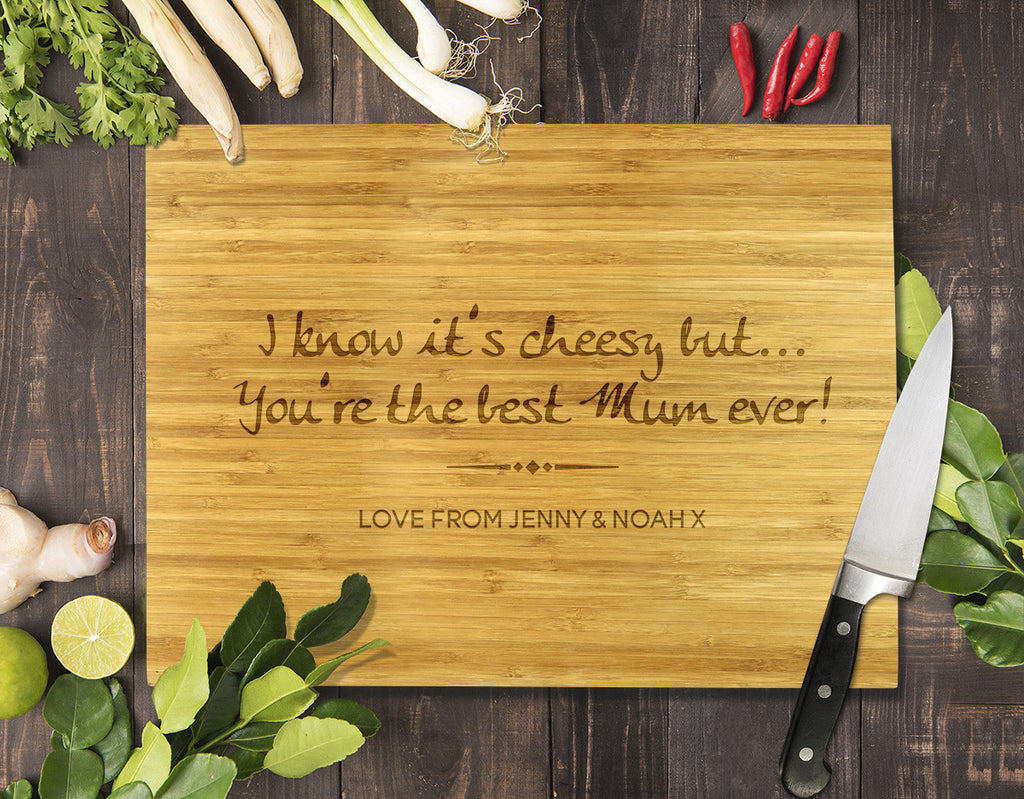 I know it's cheesy but...
You're the best Mum ever!
LOVE FROM JENNY & NOAH X